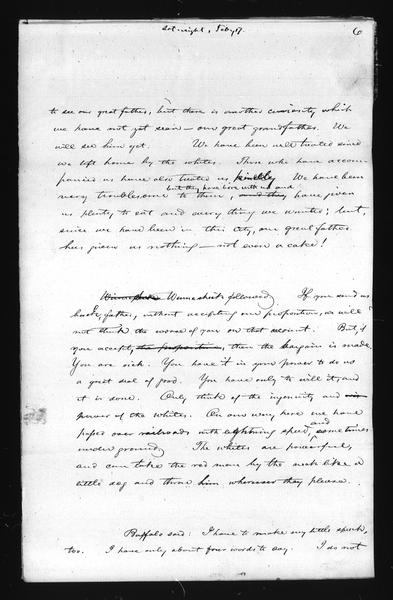 Sat. night, Feby 8.
6
to see our great father, but there is another curiosity which
we have not yet seen — our great grandfather. We
will see him yet. We have been well treated since
we left home by the whites. Those who have accom-
panied us have also treated us kindly. We have been
but they have bore with us and
very troublesome to them, and they have given
us plenty to eat and every thing we wanted; but,
since we have been in this city, our great father
has given us nothing — not even a cake!
Winneshiek followed. If you send us
back, father, without accepting our proposition, we will
not think the worse of you on that account. But, if
you accept, the proposition, then the bargain is made.
You are rich. You have it in your power to do us
a great deal of good. You have only to will it, and
it is done. Only think of the ingenuity and
power of the whites. On our way here we have
and
passed over railroads with lightning speed, sometimes
under ground. The whites are powerful,
and can take the red man by the neck like a
little dog and throw him wherever they please.
Buffalo said: I have to make my little speech,
too. I have only about four words to say. I do not